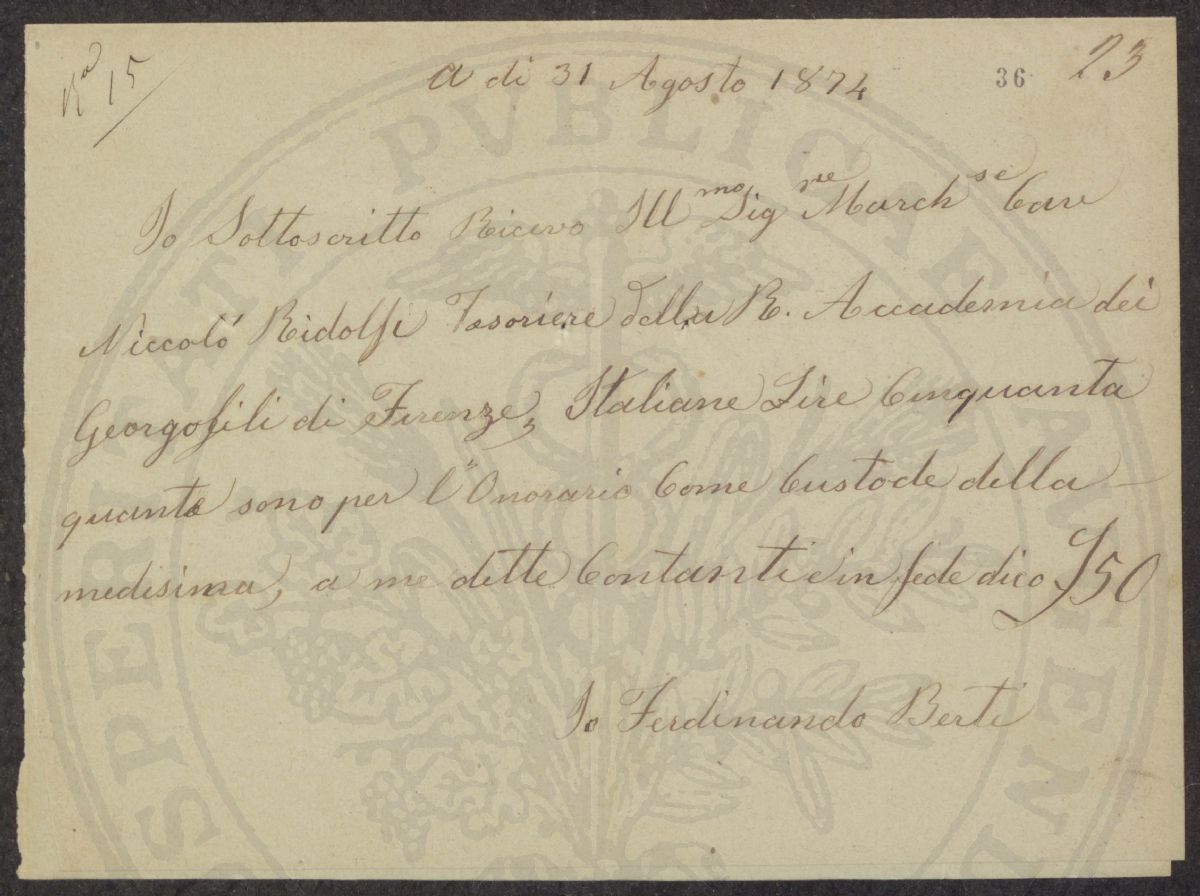 Ra 15
a di 31 Agosto 1874
36
23
Io Sottoscritto Ricevo Ill mo Sig re March se Cav
Niccoló Ridolfi Tesoriere della R. Accademia dei
Georgofili di Firenze, Italiane Lire Cinquanta
quante sono per l'Onorario Come Custode della —
medisima, a me dette Contanti e in fede dico £50
Io Ferdinando Berti
PROSPERITATI PVBLICAE AVGENDAE